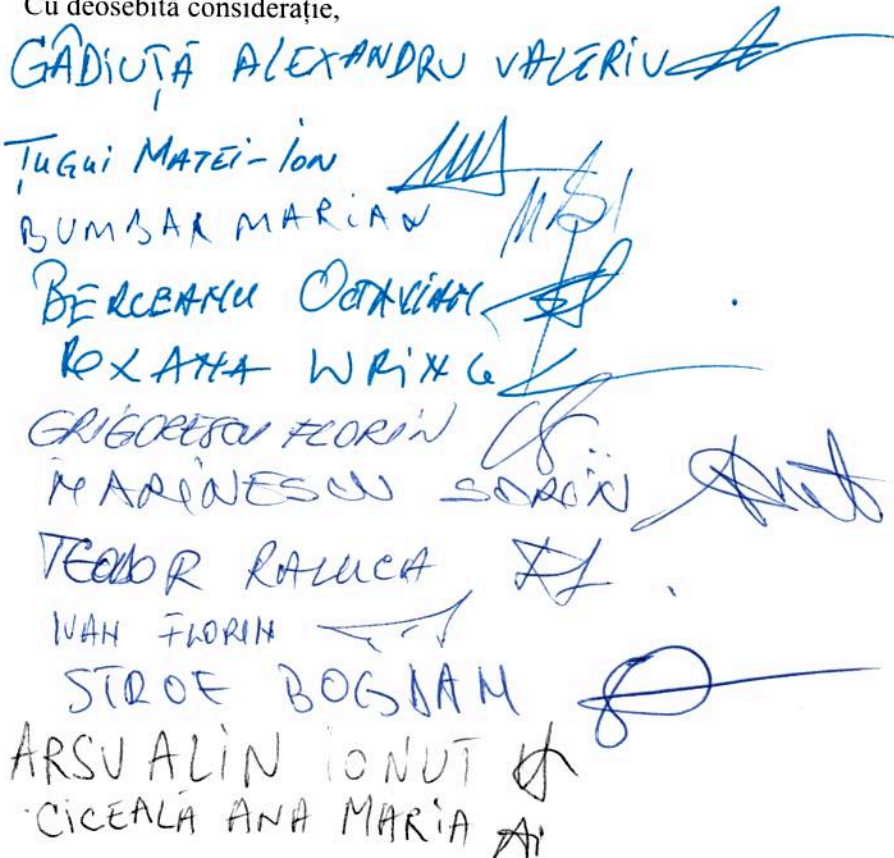 Cu deosebită considerație,
GÂDIUȚĂ ALEXANDRU VALERIU
ȚUGUI MATEI-ION
BUMBAR MARIAN
BERCEANU OCTAVIAN
ROXANA WRING
GRIGORESCU FLORIN
MARINESCU SORIN
TEODOR RALUCA
IVAN FLORIN
STROE BOGDAN
ARSU ALIN IONUT
CICEALĂ ANA MARIA